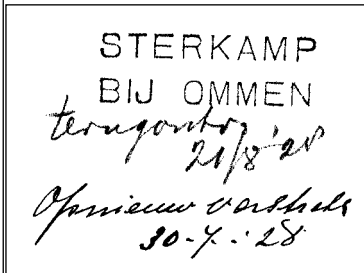 STERKAMP
BIJ OMMEN
terugontv.
21/8 '28
Opnieuw verstrekt
30-7-'28